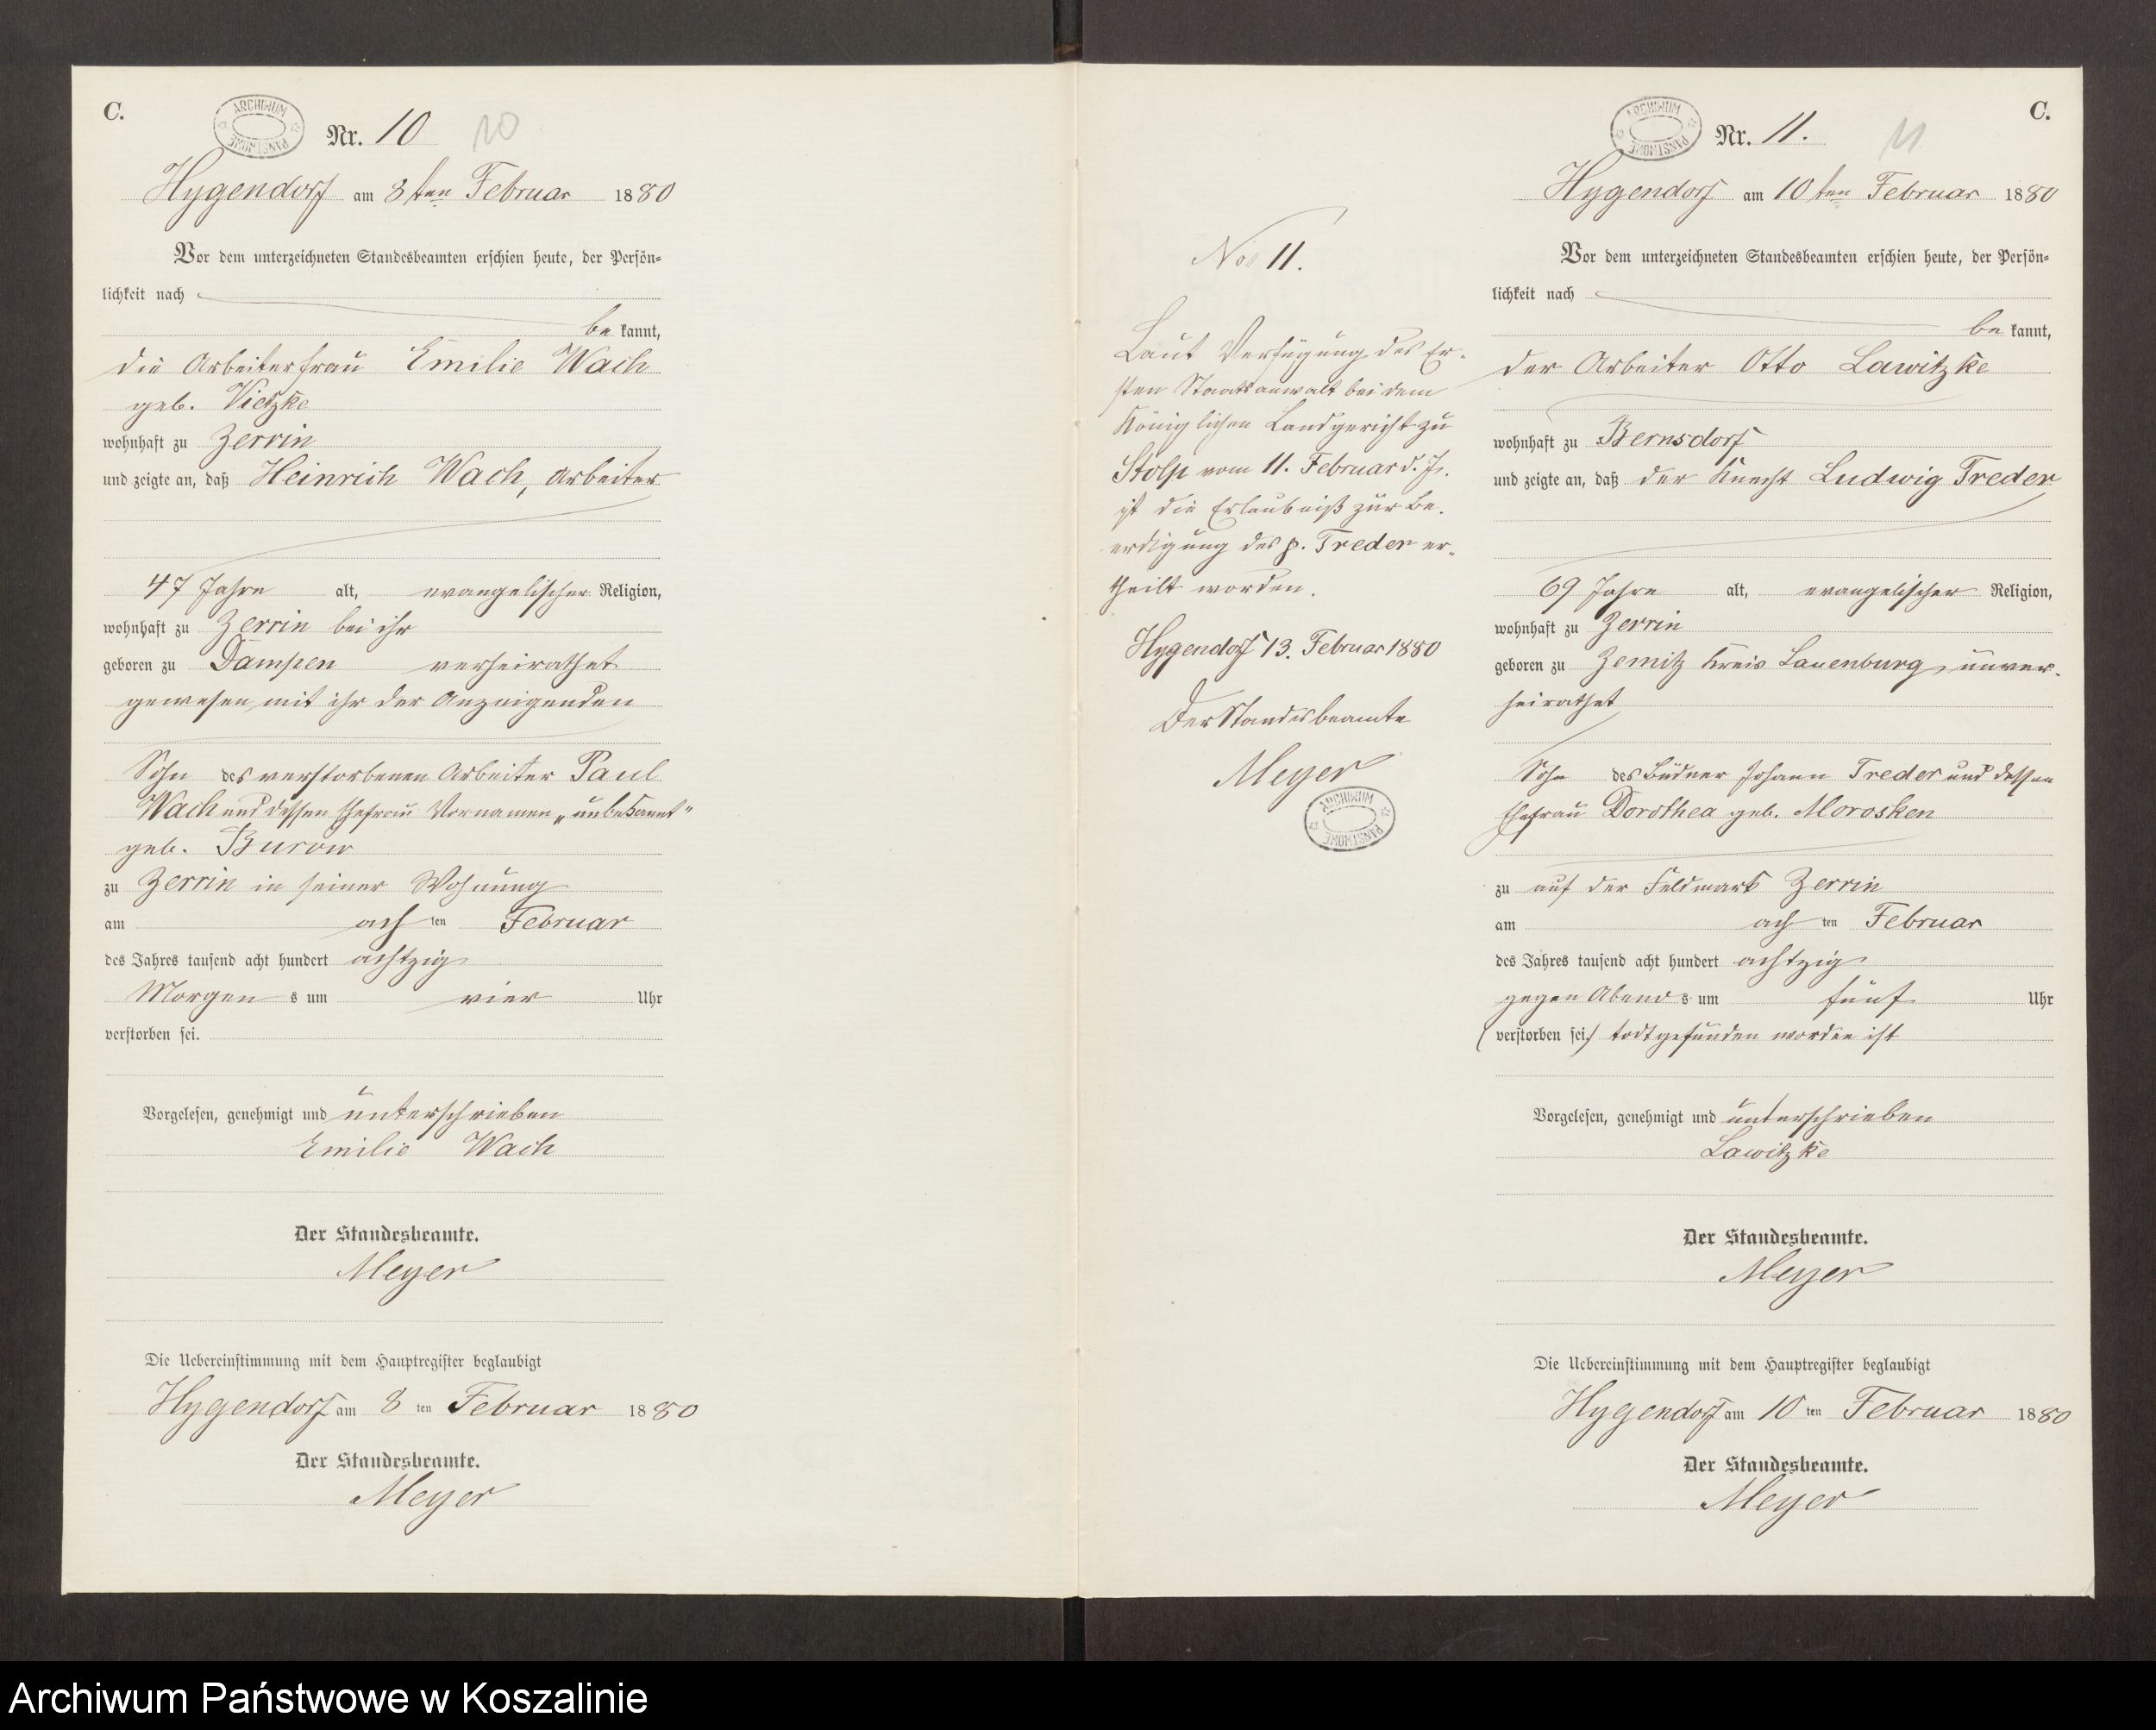 C.
ARCHIWUM PAŃSTWOWE
Nr. 10
10
Hygendorf am 8ten Februar 1880
Vor dem unterzeichneten Standesbeamten erschien heute, der Persön-
lichkeit nach
be kannt,
die Arbeiterfrau Emilie Wach
geb. Vietzke
wohnhaft zu Zerrin
und zeigte an, daß Heinrich Wach, Arbeiter
47 Jahre alt, evangelischer Religion,
wohnhaft zu Zerrin bei ihr
geboren zu Dampen verheirathet
gewesen mit ihr der Anzeigenden
Sohn des verstorbenen Arbeiter Paul
Wach und dessen Ehefrau Vornamen „unbekannt"
geb. Burow
zu Zerrin in seiner Wohnung
am ach ten Februar
des Jahres tausend acht hundert achtzig
Morgen s um vier Uhr
verstorben sei.
Vorgelesen, genehmigt und unterschrieben
Emilie Wach
Der Standesbeamte.
Meyer
Die Uebereinstimmung mit dem Hauptregister beglaubigt
Hygendorf am 8 ten Februar 1880
Der Standesbeamte.
Meyer
No 11.
Laut Verfügung des Er-
sten Staatsanwalt bei dem
Königlichen Landgericht zu
Stolp vom 11. Februar d. Js.
ist die Erlaubniß zur Be-
erdigung des p. Treder er-
theilt worden.
Hygendorf 13. Februar 1880
Der Standesbeamte
Meyer
ARCHIWUM PAŃSTWOWE
C.
ARCHIWUM PAŃSTWOWE
Nr. 11.
11
Hygendorf am 10ten Februar 1880
Vor dem unterzeichneten Standesbeamten erschien heute, der Persön-
lichkeit nach
be kannt,
der Arbeiter Otto Lawitzke
wohnhaft zu Bernsdorf
und zeigte an, daß der Knecht Ludwig Treder
69 Jahre alt, evangelischer Religion,
wohnhaft zu Zerrin
geboren zu Zemitz Kreis Lauenburg, unver-
heirathet
Sohn des Büdner Johann Treder und dessen
Ehefrau Dorothea geb. Morosken
zu auf der Feldmark Zerrin
am ach ten Februar
des Jahres tausend acht hundert achtzig
gegen Abend s um fünf Uhr
(verstorben sei.) todt gefunden worden ist
Vorgelesen, genehmigt und unterschrieben
Lawitzke
Der Standesbeamte.
Meyer
Die Uebereinstimmung mit dem Hauptregister beglaubigt
Hygendorf am 10 ten Februar 1880
Der Standesbeamte.
Meyer
Archiwum Państwowe w Koszalinie